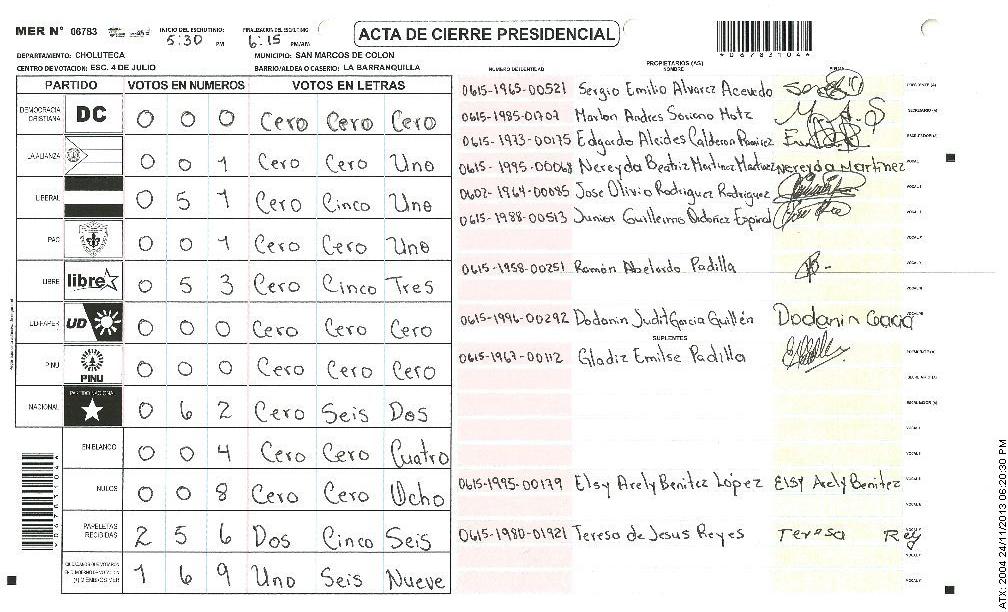 MER N° 06783 INICIO DEL ESCRUTINIO: 5:30 PM FINALIZACION DEL ESCRUTINIO: 6:15 PM/AM
ACTA DE CIERRE PRESIDENCIAL
*067831044*
DEPARTAMENTO: CHOLUTECA MUNICIPIO: SAN MARCOS DE COLON
CENTRO DE VOTACION: ESC. 4 DE JULIO BARRIO/ALDEA O CASERIO: LA BARRANQUILLA
PARTIDO VOTOS EN NUMEROS VOTOS EN LETRAS
DEMOCRACIA CRISTIANA DC 0 0 0 Cero Cero Cero
LA ALIANZA 0 0 1 Cero Cero Uno
LIBERAL 0 5 1 Cero Cinco Uno
PAC 0 0 1 Cero Cero Uno
LIBRE libre 0 5 3 Cero Cinco Tres
UD FAPER UD 0 0 0 Cero Cero Cero
PINU PINU 0 0 0 Cero Cero Cero
NACIONAL PARTIDO NACIONAL 0 6 2 Cero Seis Dos
EN BLANCO 0 0 4 Cero Cero Cuatro
NULOS 0 0 8 Cero Cero Ocho
PAPELETAS RECIBIDAS 2 5 6 Dos Cinco Seis
1 6 9 Uno Seis Nueve
NUMERO DE IDENTIDAD PROPIETARIOS (AS) NOMBRE FIRMA
0615-1965-00521 Sergio Emilio Alvarez Acevedo
0615-1985-01707 Marlon Andres Soriano Motz
0615-1973-00175 Edgardo Alcides Calderon Ramirez
0615-1995-00068 Nereyda Beatriz Martinez Martinez Nereyda Martinez
0602-1969-00085 Jose Olivio Rodriguez Rodriguez
0615-1988-00513 Junior Guillermo Ordoñez Espinal
0615-1958-00251 Ramón Abelardo Padilla
0615-1996-00292 Dodanin Judit Garcia Guillén Dodanin Garcia
SUPLENTES
0615-1967-00112 Gladiz Emilse Padilla
0615-1995-00179 Elsy Arely Benitez López Elsy Arely Benitez
0615-1980-01921 Teresa de Jesus Reyes Teresa Rey
ATX: 2004 24/11/2013 06:20:30 PM